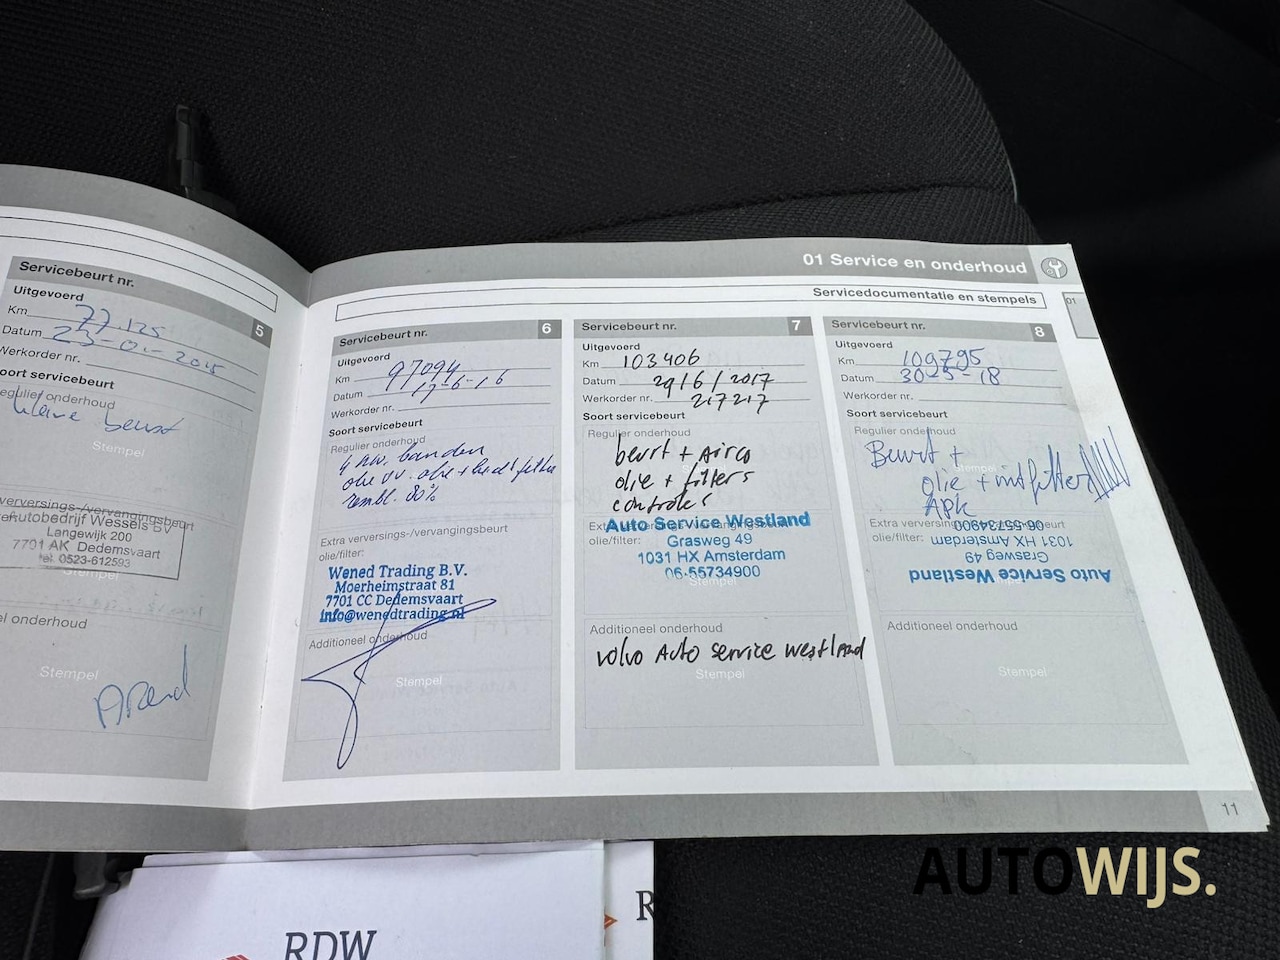 01 Service en onderhoud
Servicedocumentatie en stempels
01
Servicebeurt nr.
5
Uitgevoerd
Km 77.125
Datum 23-01-2015
Werkorder nr.
oort servicebeurt
Regulier onderhoud
kleine beurt
Stempel
verversings-/vervangingsbeurt
Autobedrijf Wessels BV
Langewijk 200
7701 AK Dedemsvaart
tel. 0523-612593
Stempel
el onderhoud
Stempel
Servicebeurt nr.
6
Uitgevoerd
Km 97094
Datum 17-6-16
Werkorder nr.
Soort servicebeurt
Regulier onderhoud
4 nw. banden
olie vv. olie + lucht filter
rembl. 80%
Extra verversings-/vervangingsbeurt
olie/filter:
Wened Trading B.V.
Moerheimstraat 81
7701 CC Dedemsvaart
info@wenedtrading.nl
Additioneel onderhoud
Stempel
Servicebeurt nr.
7
Uitgevoerd
Km 103406
Datum 29/6/2017
Werkorder nr. 217217
Soort servicebeurt
Regulier onderhoud
beurt + Airco
olie + filters
controles
Auto Service Westland
olie/filter:
Grasweg 49
1031 HX Amsterdam
06-55734900
Stempel
Additioneel onderhoud
volvo Auto service westland
Stempel
Servicebeurt nr.
8
Uitgevoerd
Km 109795
Datum 30-5-18
Werkorder nr.
Soort servicebeurt
Regulier onderhoud
Beurt +
Stempel
olie + intfilter
APK
Extra verversings-/vervangingsbeurt
olie/filter:
Auto Service Westland
Grasweg 49
1031 HX Amsterdam
06-55734900
Additioneel onderhoud
Stempel
11
RDW
R
AUTOWIJS.